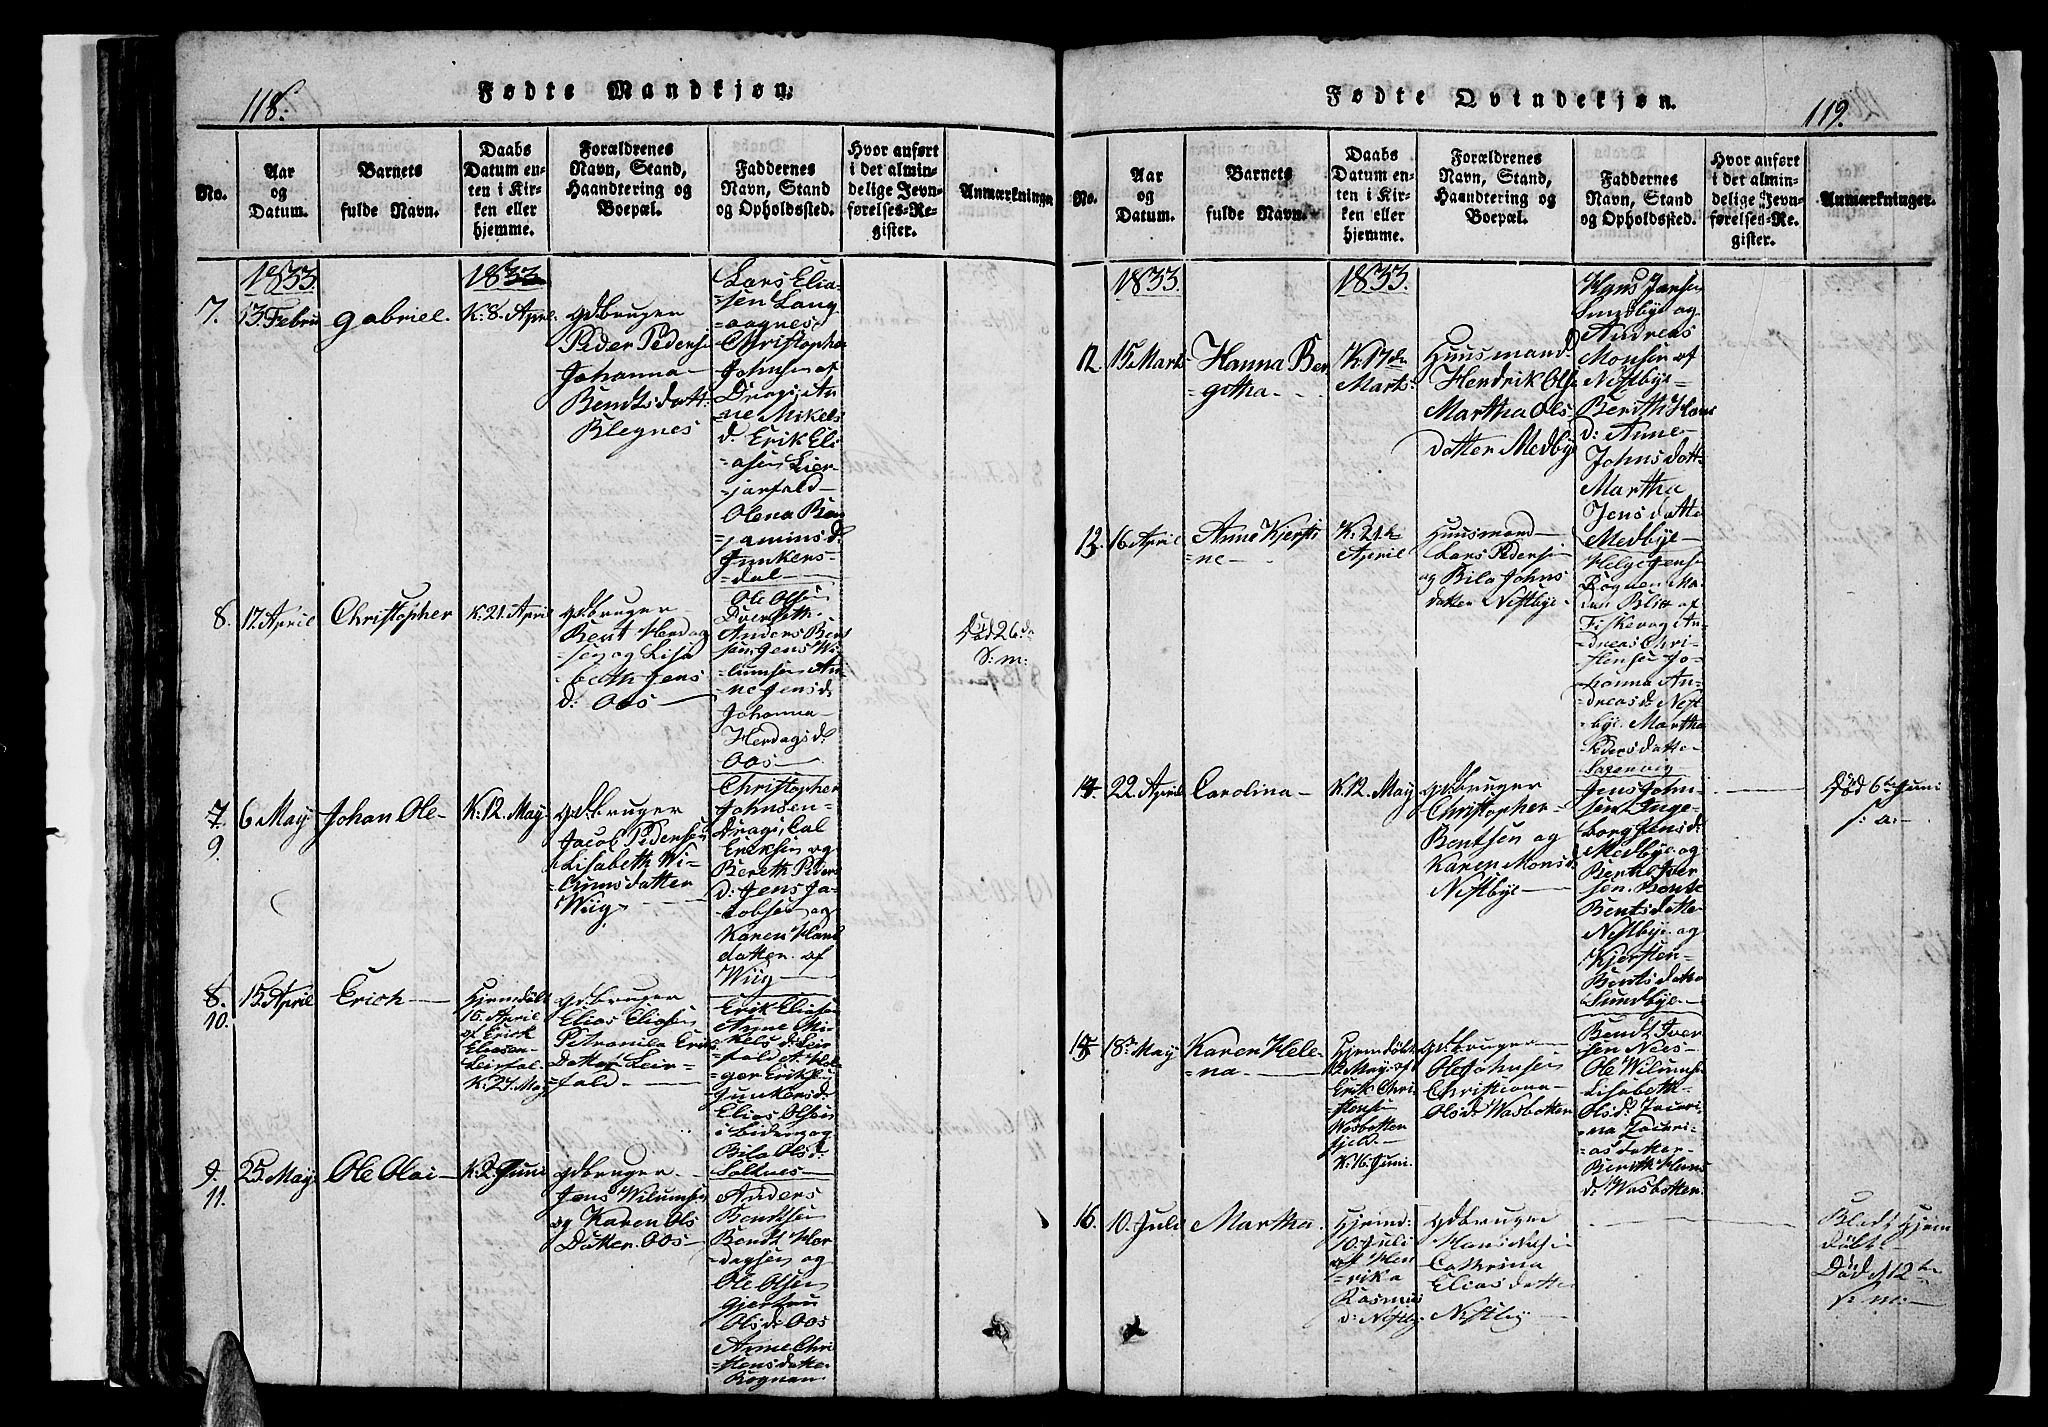 118.
Fødte Mandkjøn.
No.
Aar
og
Datum.
Barnets
fulde Navn.
Daabs
Datum en-
ten i Kir-
ken eller
hjemme.
Forældrenes
Navn, Stand,
Haandtering og
Boepæl.
Faddernes
Navn, Stand
og Opholdssted.
Hvor anført
i det almin-
delige Jevn-
førelses-Re-
gister.
Anmærkninger
1833.
1833
7.
13 Febru
Gabriel.
K: 8. April.
Gdbruger
Peder Pedersen
Johanna
Bendtsdatt:
Blegnes
Lars Elia-
=sen Lang
=aagnes
Christopher
Johnsen af
Drags, An
=ne Mikels
d. Erik Eli
=asen Leer
=jorfald
Olena Ben
=jaminsd:
Junkers-
=dal
8.
17 April
Christopher
K: 21. April
Gdbruger
Bent Herdag
=sen og Lisa
=beth Jens
d: Oos
Ole Olsen
Anders Bent
=sen Jens Wi-
=lumsen An-
=ne Jensd:
Johanna
Herdagsd:
Oos
Död 26de
S: m:
7.
9.
6 May
Johan Ole
K: 12. May
Gdbruger
Jacob Pedersen
Lisabeth Wi-
=lumsdatter
Wiig
Christopher
Johnsen
Drags, Cal
Eriksen og
Bereth Peders
d: Jens Ja-
=cobsen og
Karen Hans
datter af
Wiig
8.
10.
15 April
Erich
Hjemdöbt
15. April
af Erick
Eliasen
Leirfal.
K: 27. May
Gdbruger
Elias Eliasen
Petronila Eriks
Datter Leir-
=fald
Erik Eliasen
Anne Mi-
kels d: Leir
=fald
=ger Eriksen
Junkersd:
Elias Olsen
og
Bila Olsd:
Saltnes
9.
11.
25 May
Ole Olai
K: 2 Juni
Gdbruger
Jens Wilumsen
og Karen Ols
Datter. Oos
Anders
Bendtsen
Bendt Her
=dagsen og
Ole Olsen
Gjertru
Olsd: Oos
Anne Chri
=stensdatter
Rognan
119.
Fødte Qvindekjøn.
No.
Aar
og
Datum.
Barnets
fulde Navn.
Daabs
Datum en-
ten i Kir-
ken eller
hjemme.
Forældrenes
Navn, Stand,
Haandtering og
Boepæl.
Faddernes
Navn, Stand
og Opholdssted.
Hvor anført
i det almin-
delige Jevn-
førelses-Re-
gister.
Anmærkninger.
1833.
1833.
12.
15 Marts
Hanna Ber
=githa
K: 17de
Marts
Huusmand
Hendrik Ols:
Martha Ols
datter Medbye
Hans Jansen
Sundbye og
Andreas
Monsen af
Nestbye
Berith Hans
d: Anne
Johnsdatt
Martha
Jensdatte
Medbye
13.
16 April
Anne Kjersti
=ne
K: 21de
April
Huusmand
Lars Pedersen
og Bila Johns
datter Nestbye
Helge Jensen
Rognen Ma
dan Blix af
Fiskevag An
=dreas Chri-
=stensen Jo-
=hanna An-
=dreasd: Nest
=bye. Martha
=Pedersdatte
Saxenvig
14
22. April
Carolina
K: 12. May
Gdbruger
Christopher
Bentsen og
Karen Monsd:
Nestbye
Jens John-
sen Inge-
borg Jensd:
Medbye og
Bertha Iver
sen.
Bentsdatter
Nestbye og
Kjersten
Bentsdatter
Sundbye
Död 6te Juni
s: a:
15
18de May
Karen Hele-
=na
Hjemdöbt
May af
Erik Chri-
=stensen
Wasbotten
fjeld
K: 16. Juni.
Gdbruger
Ole Johnsen
Christiana
Olsd: Wasbotten
Bendt Iver
sen Nees
Ole Wilumse
Lisabeth
Olsd:
=na Zachri-
=as datter
Berith Hans
d: Wasbotten
16.
10. Juli
Martha.
Hjem:
10. Juli
af Hen
=rika
Rasmus
d: Nestby
Gdbruger
Hans Nilsen
Cathrina
Eliasdatte
Nestby
Blev Hjem
döbt
Död d 12te
s: m: